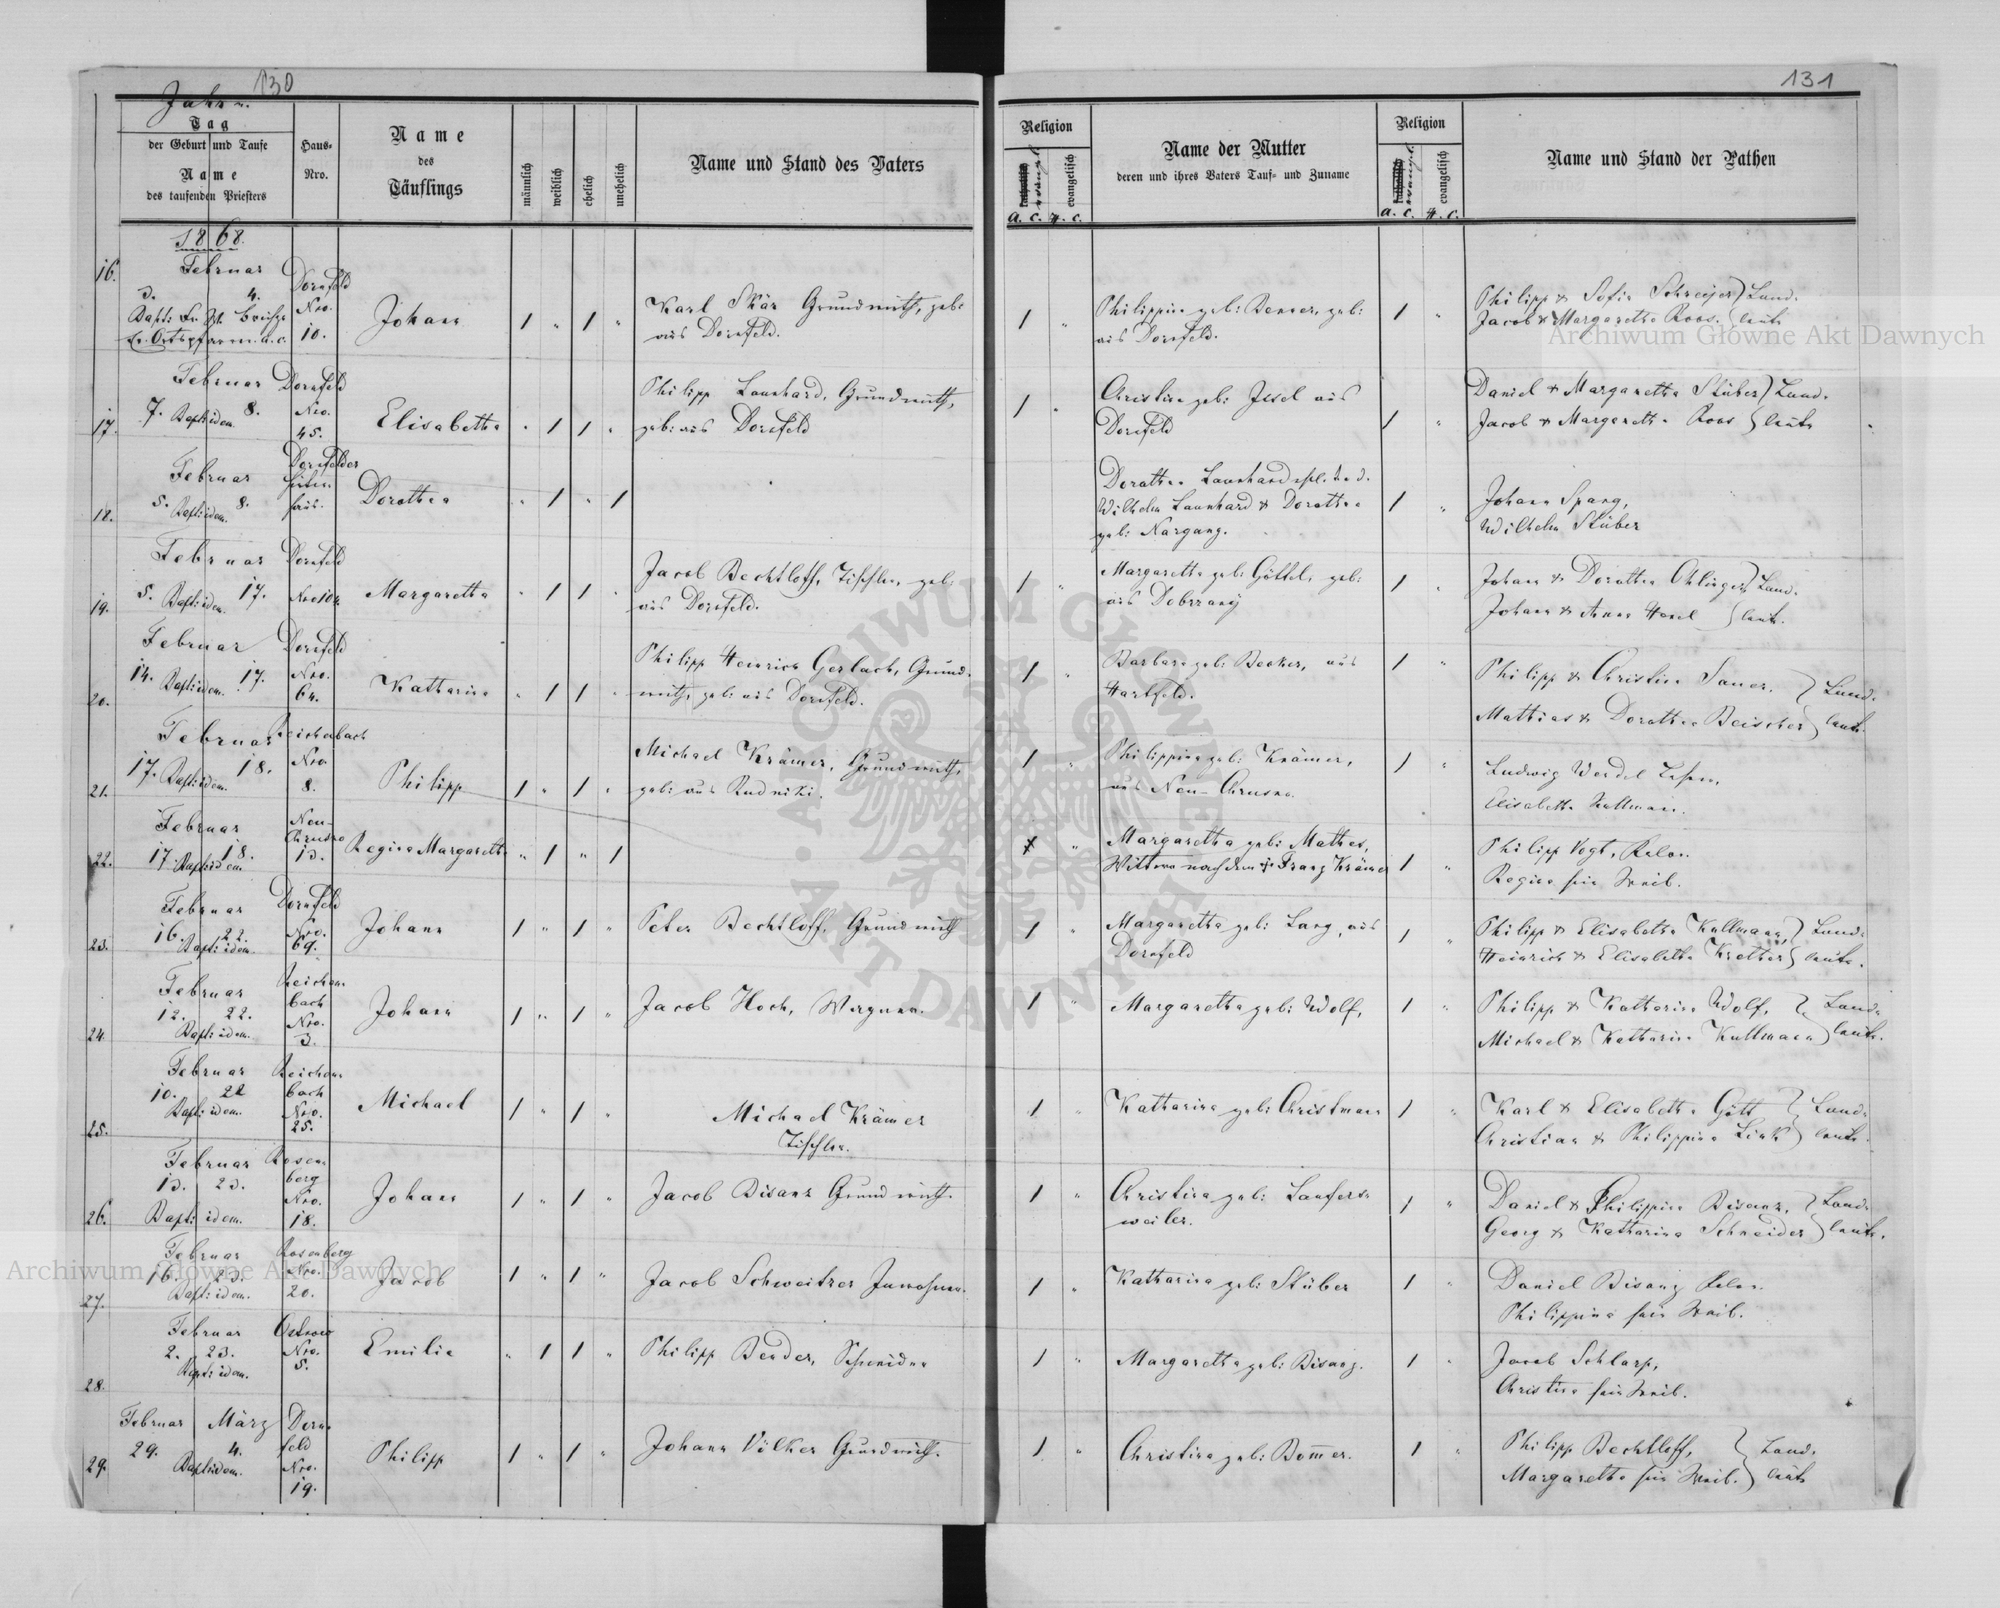 130
Jahr u.
Tag
der Geburt und Taufe
Name
des taufenden Priesters
Haus-
Nro.
Name
des
Täuflings
männlich
weiblich
ehelich
unehelich
Name und Stand des Vaters
131
Religion
evangel.
evangelisch
A. C. H. C.
Name der Mutter
deren und ihres Vaters Tauf- und Zuname
Religion
evangel.
evangelisch
A. C. H. C.
Name und Stand der Pathen
1868.
16.
Februar
3. 4.
Dornfeld
Nro.
10.
Johann
1 " 1 "
Karl Skär Grundwirth, geb:
aus Dornfeld.
1 "
Philippina geb: Benner, geb:
aus Dornfeld.
1 "
Philipp & Sofia Schreyer } Land-
Jacob & Margaretha Roos. } leute
17.
Februar
7. Bapt: idem. 8.
Dornfeld
Nro.
45.
Elisabetha
" 1 1 "
Philipp Launhard, Grundwirth,
geb: aus Dornfeld
1 "
Christina geb: Jesel aus
Dornfeld
1 "
Daniel & Margaretha Stüber } Land-
Jacob & Margaretha Roos } leute
18.
Februar
5. Bapt: idem. 8.
Dornfelder
Dorothea
" 1 " 1
Dorothea Launhard
Wilhelm Launhard & Dorothea
geb: Nargang.
1 "
Johann Spang,
Wilhelm Stüber
19.
Februar
5. Bapt: idem. 17.
Dornfeld
Nro 104.
Margaretha
" 1 1 "
Jacob Bechtloff, Tischler, geb:
aus Dornfeld.
1 "
Margaretha geb: Göttel, geb:
aus Dobrzany
1 "
Johann & Dorothea Ohlinger } Land-
Johann & Anna Hexel } leute.
20.
Februar
14. Bapt: idem. 17.
Dornfeld
Nro.
64.
Katharina
" 1 1 "
Philipp Heinrich Gerlach, Grund-
wirth, geb: aus Dornfeld.
1 "
Barbara geb: Becker, aus
Hartfeld.
1 "
Philipp & Christina Sauer. } Land-
Mathias & Dorothea Beischer } leute.
21.
Februar
17. Bapt: idem. 18.
Reichenbach
Nro
8.
Philipp
1 " 1 "
Michael Krämer, Grundwirth,
geb: aus Rudniki.
1 "
Philippina geb: Krämer,
aus Neu-Chrusno.
1 "
Ludwig Wendel
Elisabetha Kullmann.
22.
Februar
17 18.
Bapt: idem.
Neu-
Chrusno
13.
Regina Margaretha
" 1 " 1
Margaretha geb: Mathes,
Wittwe nach dem † Franz Krämer
1 "
Philipp Vogt,
Regina sein Weib.
23.
Februar
16. 22.
Bapt: idem.
Dornfeld
Nro.
69.
Johann
1 " 1 "
Peter Bechtloff, Grundwirth
1 "
Margaretha geb: Lang, aus
Dornfeld
1 "
Philipp & Elisabetha Kullmann, } Land-
Heinrich & Elisabetha Krether } leute.
24.
Februar
12. 22.
Bapt: idem.
Reichen-
bach
Nro.
3.
Johann
1 " 1 "
Jacob Hoch, Wagner.
1 "
Margaretha geb: Wolf,
1 "
Philipp & Katharina Wolf, } Land-
Michael & Katharina Kullmann } leute.
25.
Februar
10. 22
Bapt: idem.
Reichen-
bach
Nro.
25.
Michael
1 " 1 "
Michael Krämer
Tischler.
1 "
Katharina geb: Christmann
1 "
Karl & Elisabetha Gött } Land-
Christian & Philippina Link } leute.
26.
Februar
13. 23.
Bapt: idem.
Rosen-
berg
Nro.
18.
Johann
1 " 1 "
Jacob Bisanz Grundwirth.
1 "
Christina geb: Laufers-
weiler.
1 "
Daniel & Philippina Bisanz, } Land-
Georg & Katharina Schneider } leute.
27.
Februar
16. 23.
Bapt: idem.
Rosenberg
Nro.
20.
Jacob
1 " 1 "
Jacob Schweitzer
1 "
Katharina geb: Stüber
1 "
Daniel Bisanz
Philippina sein Weib.
28.
Februar
2. 23.
Bapt: idem.
Ostrow
Nro.
5.
Emilie
" 1 1 "
Philipp Bender, Schneider
1 "
Margaretha geb: Bisanz.
1 "
Jacob Schlarp,
Christina sein Weib.
29.
Februar März
29. 4.
Bapt: idem.
Dorn-
feld
Nro.
19.
Philipp
1 " 1 "
Johann Völker Grundwirth.
1 "
Christina geb: Bom̅er.
1 "
Philipp Bechtloff, } Land-
Margaretha sein Weib. } leute
Archiwum Główne Akt Dawnych
Archiwum Główne Akt Dawnych
ARCHIWUM GŁÓWNE AKT DAWNYCH